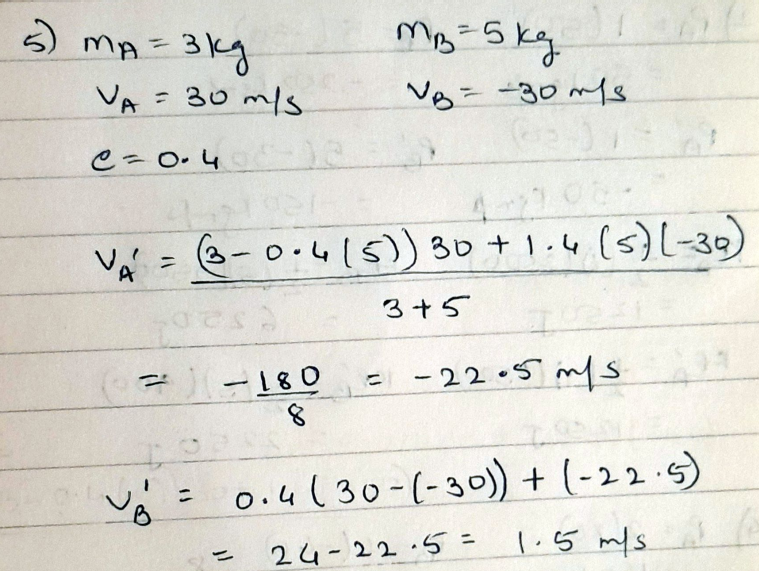 5) mA = 3kg mB = 5 kg
VA = 30 m/s VB = -30 m/s
e = 0.4
VA' = (3 - 0.4(5)) 30 + 1.4 (5)(-30)
3+5
= -180/8 = -22.5 m/s
VB' = 0.4(30-(-30)) + (-22.5)
= 24-22.5 = 1.5 m/s